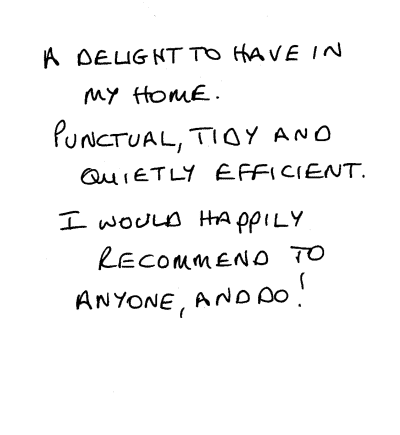 A DELIGHT TO HAVE IN
MY HOME.
PUNCTUAL, TIDY AND
QUIETLY EFFICIENT.
I WOULD HAPPILY
RECOMMEND TO
ANYONE, AND DO!